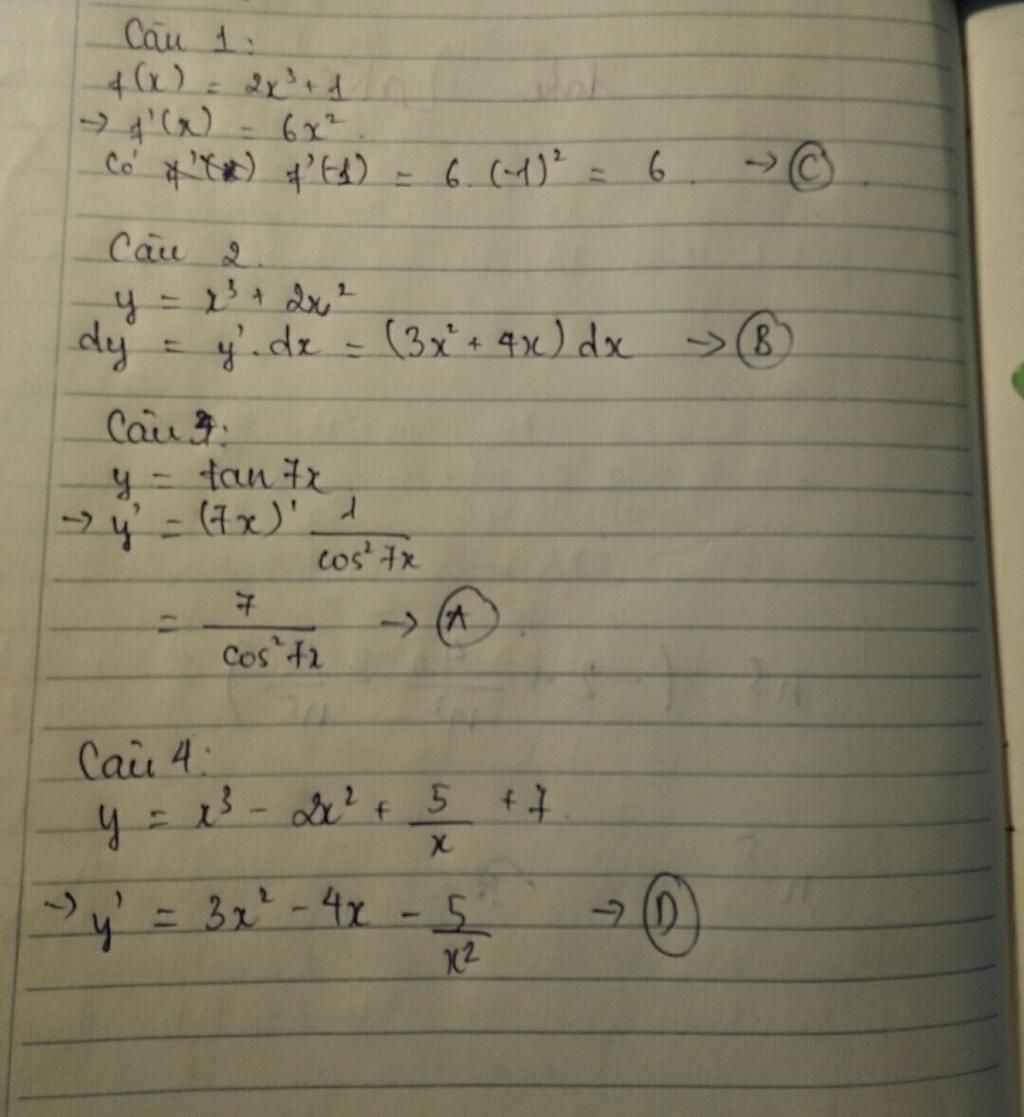 Câu 1:
f(x) = 2x³ + 1
→ f'(x) = 6x².
Có f'(-1) = 6.(-1)² = 6. → C.
Câu 2.
y = x³ + 2x²
dy = y'.dx = (3x² + 4x) dx → B
Câu 3:
y = tan 7x
→ y' = (7x)' 1/cos² 7x
= 7/cos² 7x → A.
Câu 4:
y = x³ - 2x² + 5/x + 7.
→ y' = 3x² - 4x - 5/x² → D